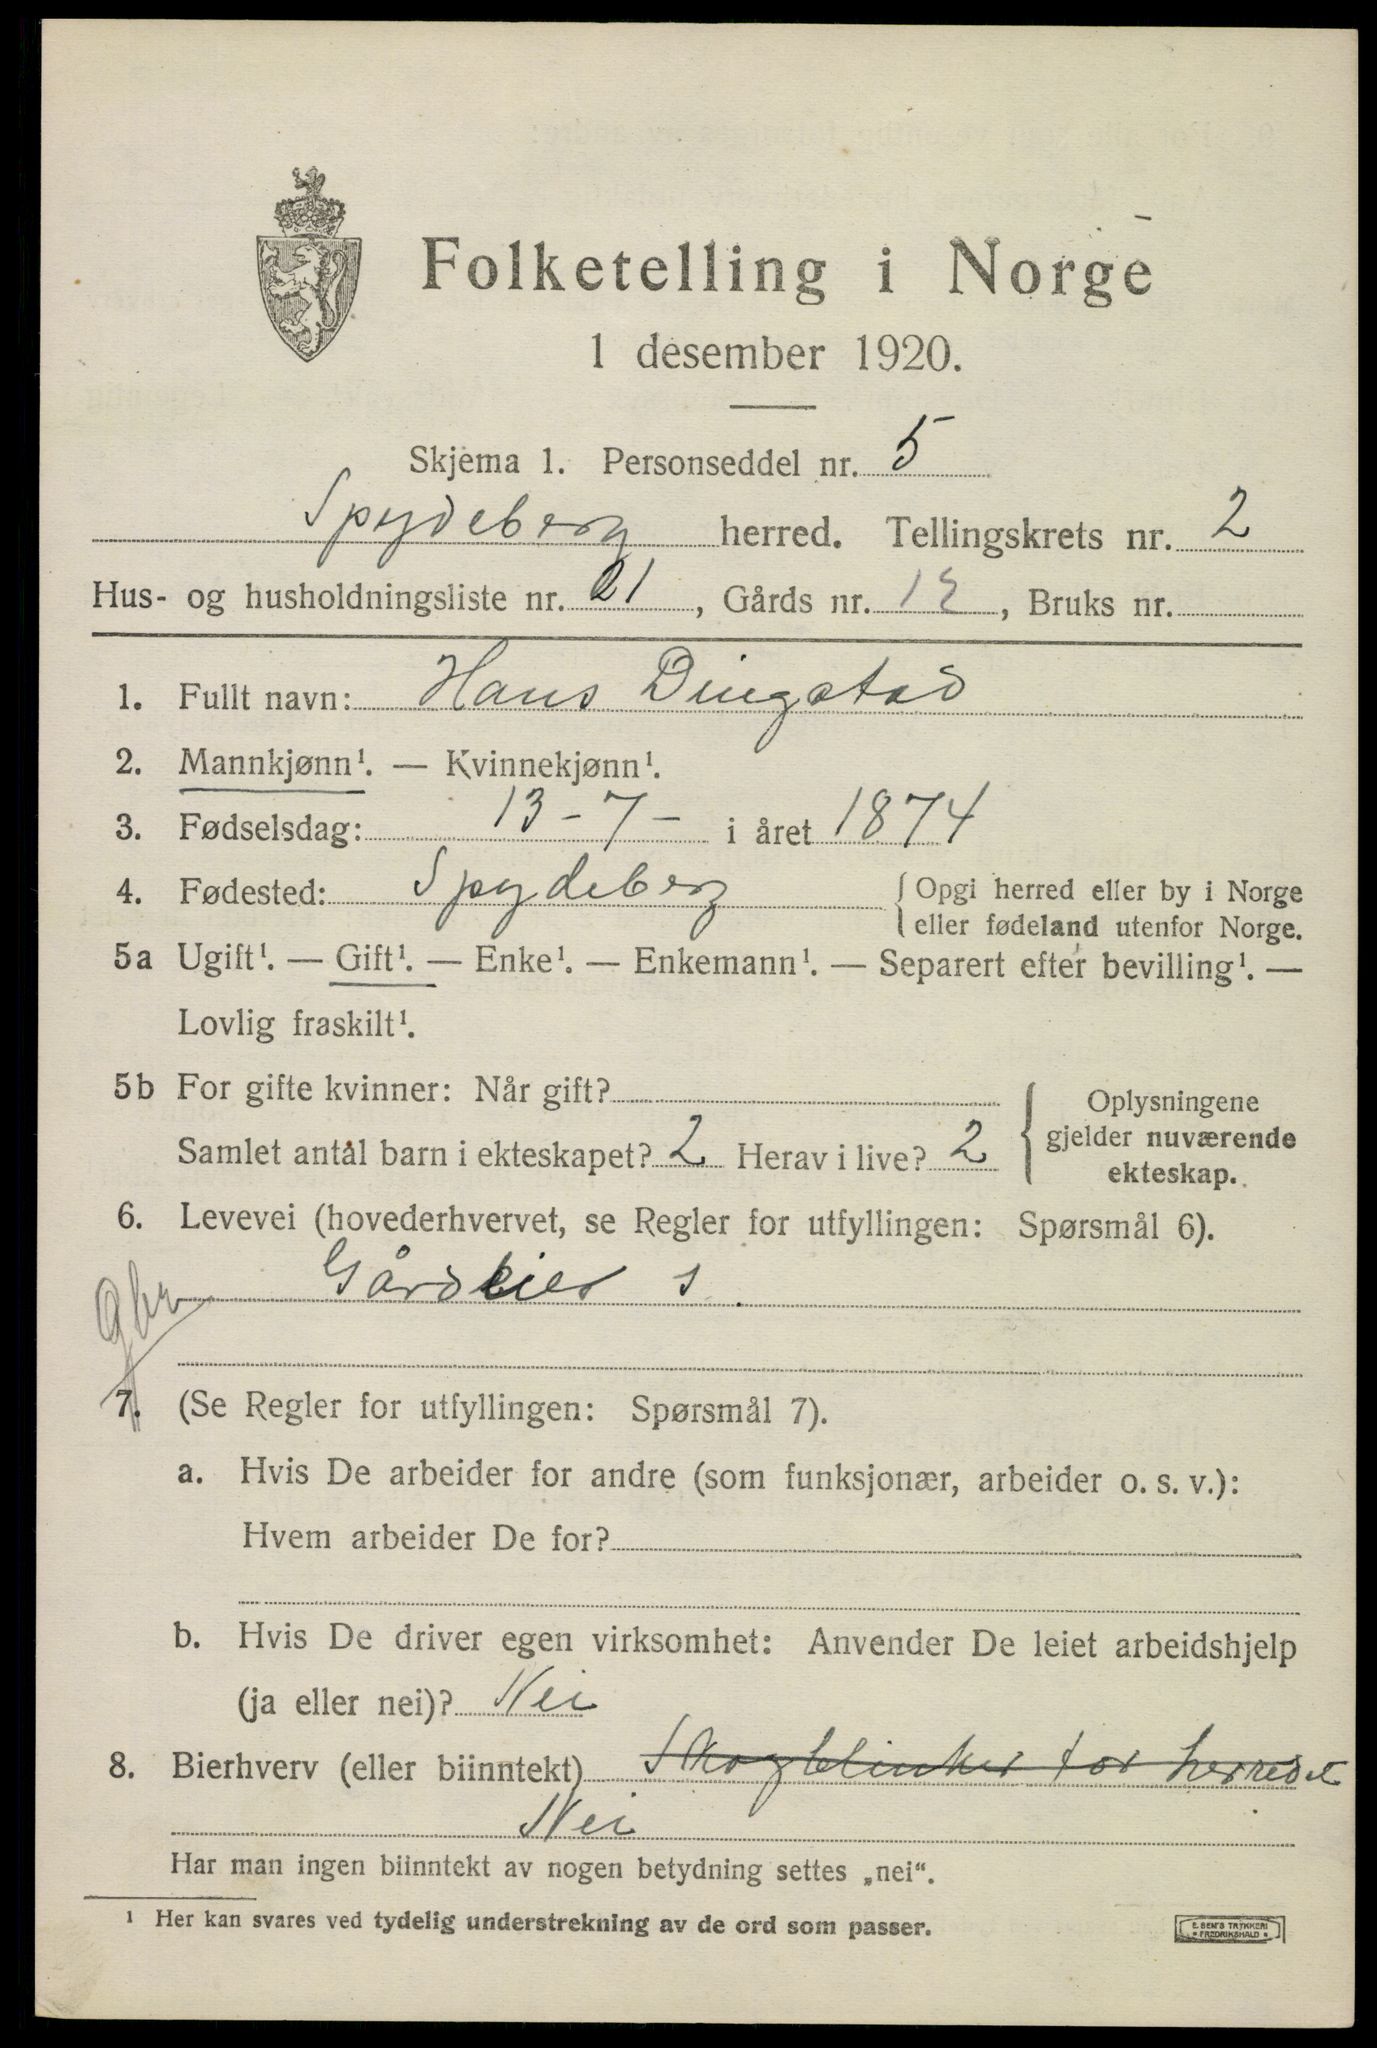 Folketelling i Norge
1 desember 1920.
Skjema 1. Personseddel nr. 5
Spydeberg herred. Tellingskrets nr. 2
Hus- og husholdningsliste nr. 21, Gårds nr. 12, Bruks nr.
1. Fullt navn: Hans Dingstad
2. Mannkjønn¹. — Kvinnekjønn¹.
3. Fødselsdag: 13-7- i året 1874
4. Fødested: Spydeberg { Opgi herred eller by i Norge
eller fødeland utenfor Norge.
5a Ugift¹. — Gift¹. — Enke¹. — Enkemann¹. — Separert efter bevilling¹. —
Lovlig fraskilt¹.
5b For gifte kvinner: Når gift?
Samlet antal barn i ekteskapet? 2 Herav i live? 2
Oplysningene
gjelder nuværende
ekteskap.
6. Levevei (hovederhvervet, se Regler for utfyllingen: Spørsmål 6).
Gårdeier s
7. (Se Regler for utfyllingen: Spørsmål 7).
a. Hvis De arbeider for andre (som funksjonær, arbeider o. s. v.):
Hvem arbeider De for?
b. Hvis De driver egen virksomhet: Anvender De leiet arbeidshjelp
(ja eller nei)? Nei
8. Bierhverv (eller biinntekt) Skogblinker for herredet
Nei
Har man ingen biinntekt av nogen betydning settes „nei“.
¹ Her kan svares ved tydelig understrekning av de ord som passer.
E. SEM'S TRYKKERI
FREDRIKSHALD